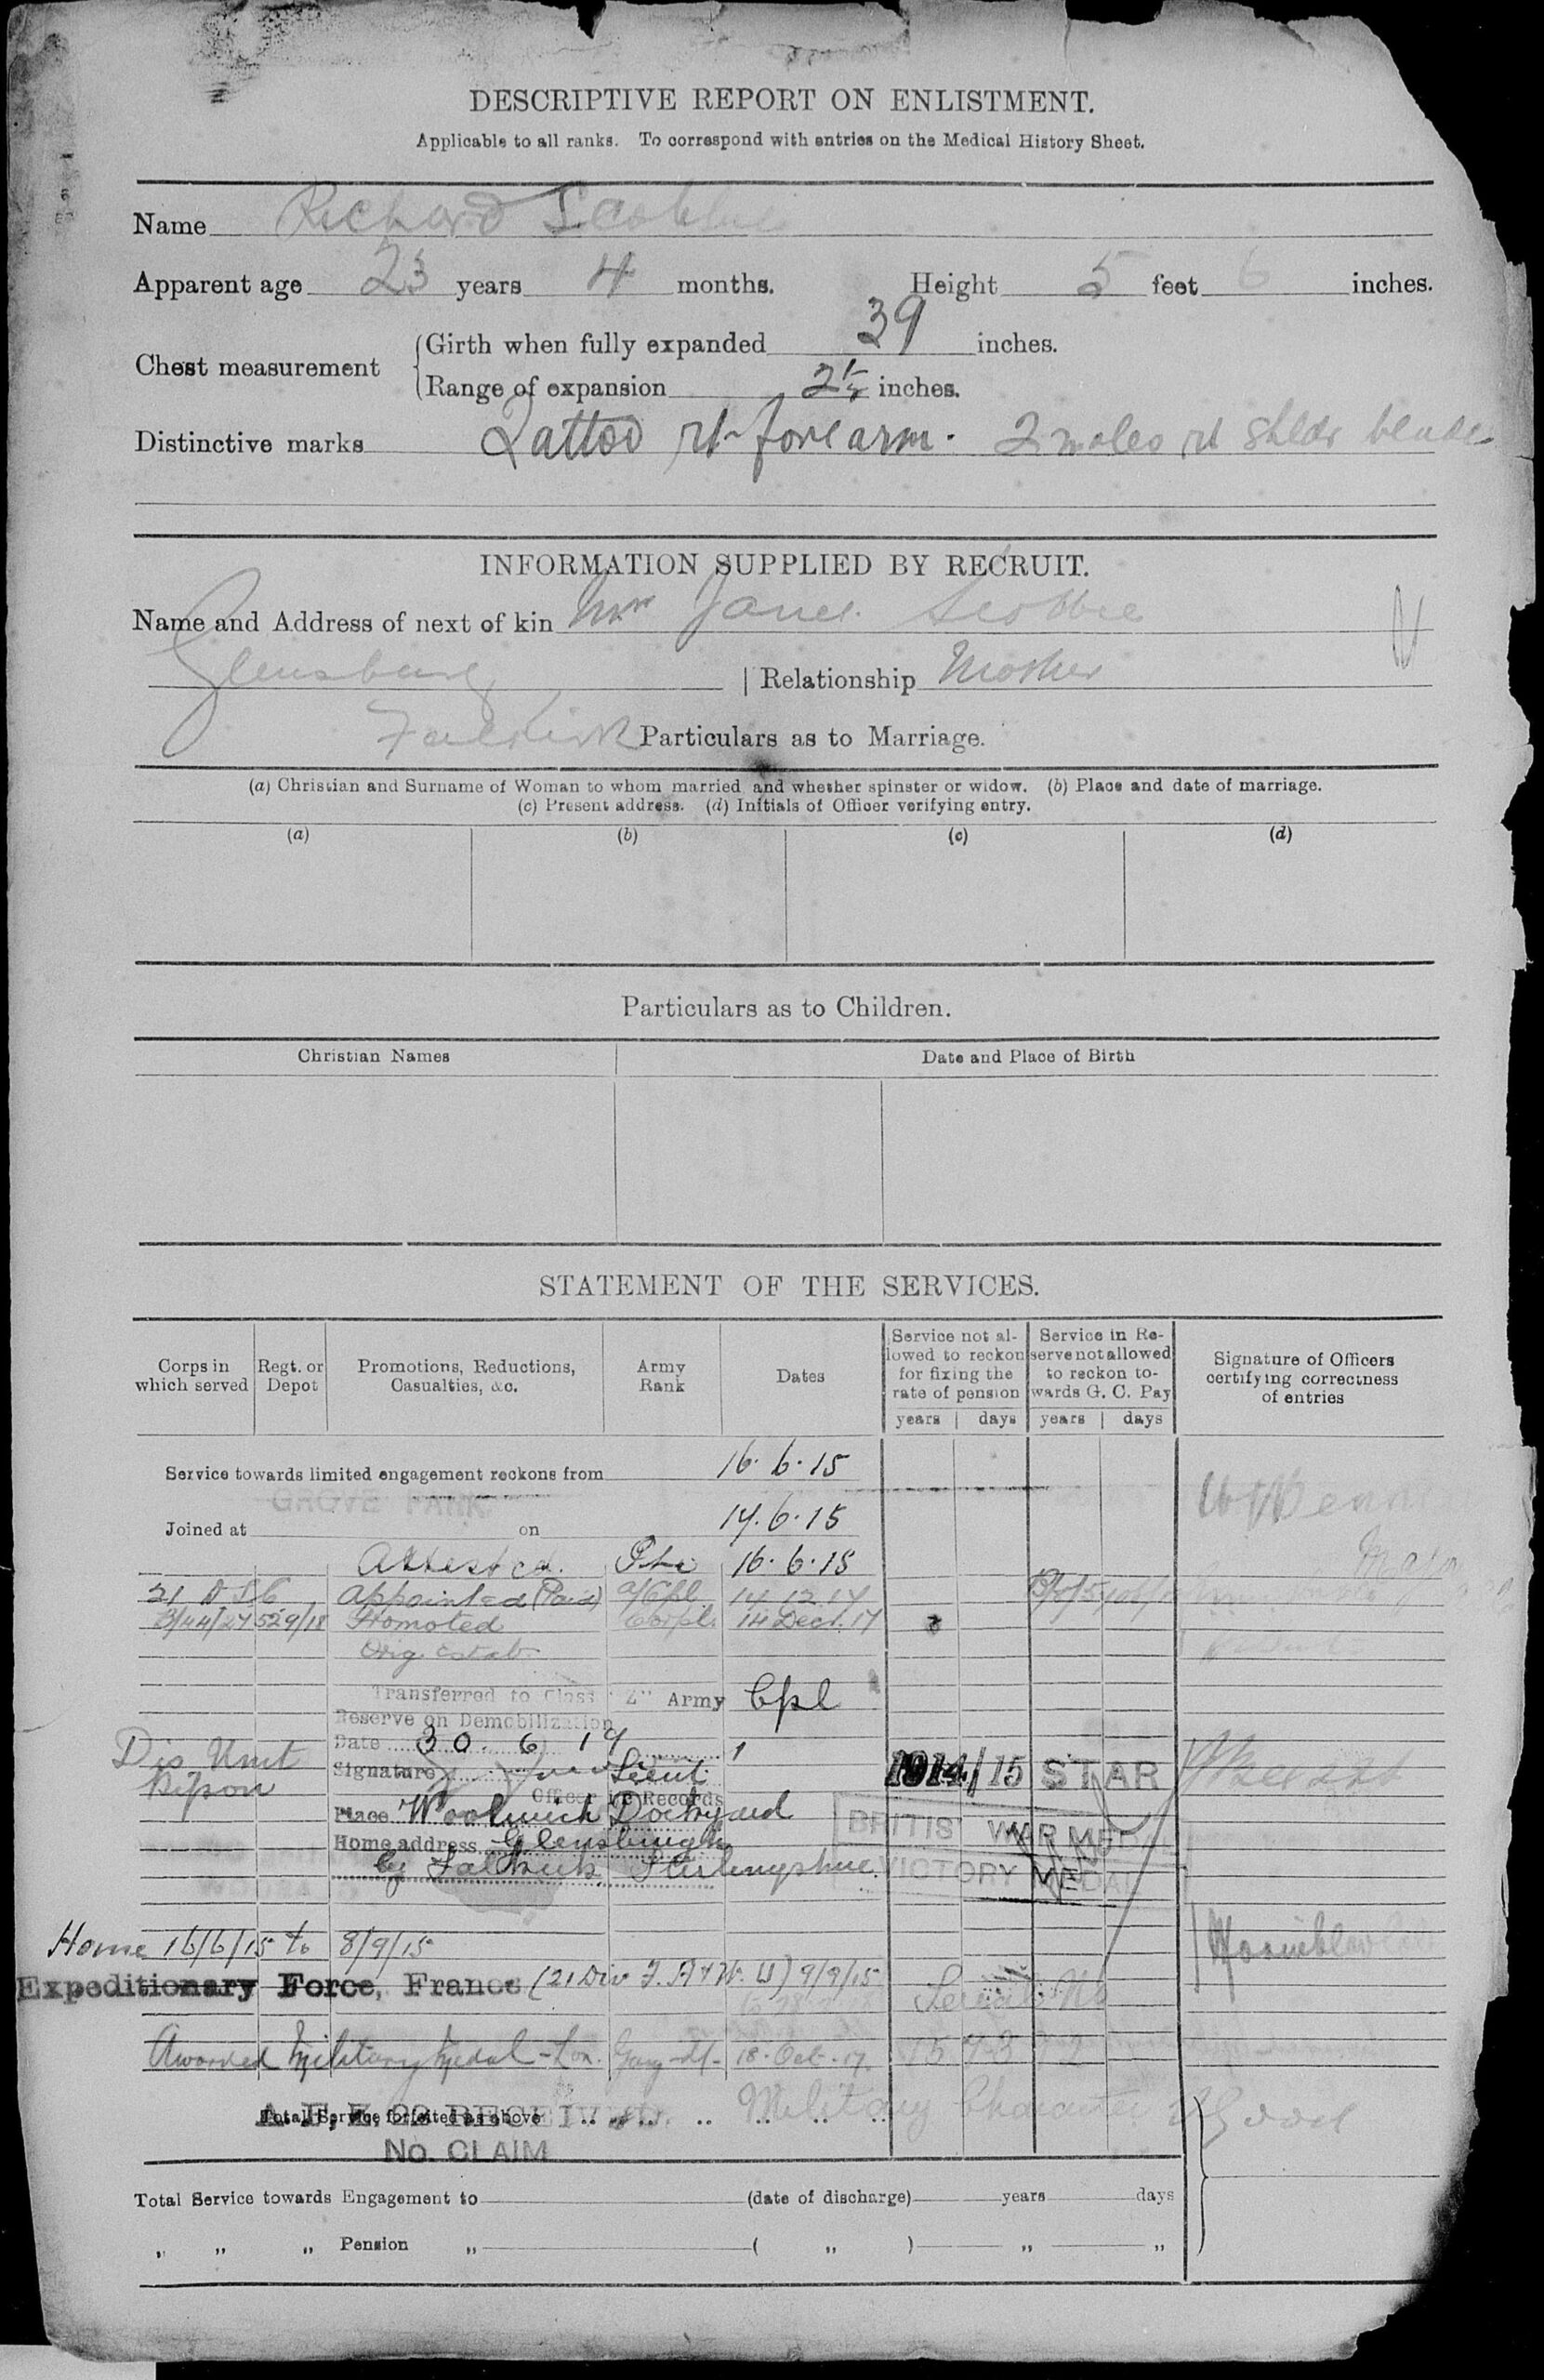 DESCRIPTIVE REPORT ON ENLISTMENT.
Applicable to all ranks. To correspond with entries on the Medical History Sheet.
Name Richard Scobbie
Apparent age 23 years 4 months. Height 5 feet 6 inches.
Chest measurement
Girth when fully expanded 39 inches.
Range of expansion 2½ inches.
Distinctive marks Tattoo rt forearm. 2 moles rt shldr blade
INFORMATION SUPPLIED BY RECRUIT.
Name and Address of next of kin Mrs Janet Scobbie
Glensburg | Relationship Mother
Falkirk
Particulars as to Marriage.
(a) Christian and Surname of Woman to whom married and whether spinster or widow. (b) Place and date of marriage.
(c) Present address. (d) Initials of Officer verifying entry.
(a) (b) (c) (d)
Particulars as to Children.
Christian Names Date and Place of Birth
STATEMENT OF THE SERVICES.
Corps in which served
Regt. or Depot
Promotions, Reductions, Casualties, &c.
Army Rank
Dates
Service not allowed to reckon for fixing the rate of pension
Service in Reserve not allowed to reckon towards G. C. Pay
Signature of Officers certifying correctness of entries
years days years days
Service towards limited engagement reckons from 16.6.15
GROVE PARK
Joined at on 14.6.15
Attested. Pte 16.6.15
Major
21 D S C Appointed (Paid) a/Cpl 14.12.17
529/18 Promoted Corpl. 14 Dec. 17
Orig Estab
Transferred to Class "Z" Army Cpl
Reserve on Demobilization
Date 30.6.19
Dis Unit Signature Lieut
Ripon
1914/15 STAR
Officer i/c Records
Place Woolwich Dockyard
BRITISH WAR MEDAL
Home address Glensburgh
by Falkirk Stirlingshire
VICTORY MEDAL
Home 16/6/15 to 8/9/15
Expeditionary Force, France (21 Div 9/9/15
Awarded Military Medal - Lon. Gaz. 18.Oct.17.
Total Service forfeited as above
A.F.Z. 22 RECEIVED.
Military Character Good
No. CLAIM
Total Service towards Engagement to (date of discharge) years days
„ „ „ Pension „ ( „ ) „ „